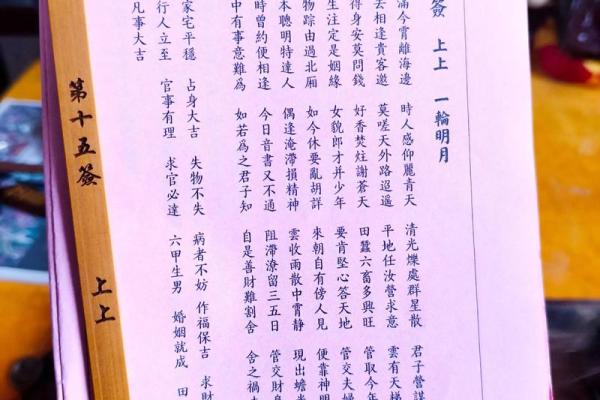 簽 上上 一輪明月
滿今宵離海邊 時人感仰麗青天 清光爍處群星散 君子營謀
去相逢貴客邀 莫嗟天外路迢遙 平地任汝營求意 雲有天梯
得身安莫問錢 好香焚炷謝蒼天 田蠶六畜多興旺 管取今年
生注定是姻緣 女貌郎才并少年 要肯堅心答天地 管交夫婦
物踪由過北廂 如今休要亂胡詳 來朝自有傍人見 便靠神明
本聰明特達人 偶逢淹滯損精神 雲收雨散中宵静 現出蟾
時曾約便相逢 今日音書又不通 阻滯潦留三五日 管交財
中有事意難為 如若為之君子知 自是善財難割舍 舍之禍
家宅平穩 占身大吉 失物不失 病者不妨 作福保吉 求財
行人立至 官事有理 求官必達 六甲生男 婚姻就成 田
凡事大吉
第十五簽 上上